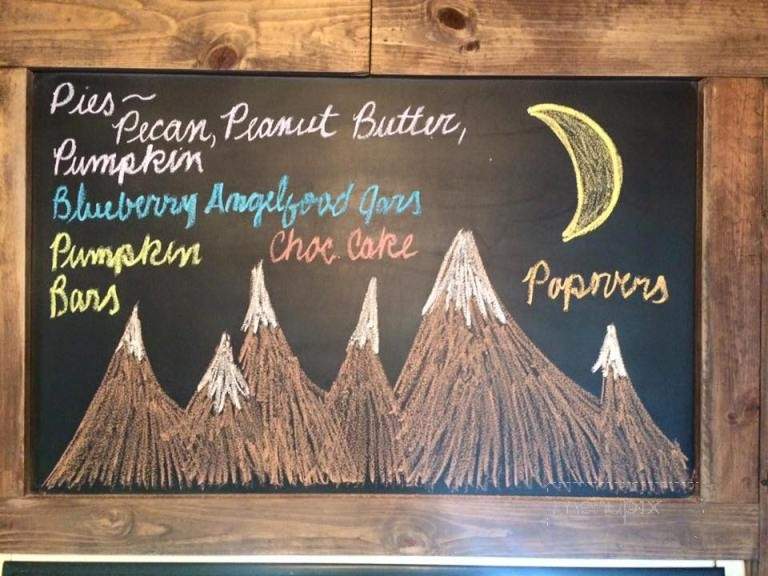 Pies~
Pecan, Peanut Butter,
Pumpkin
Blueberry Angelfood Jars
Pumpkin Choc. Cake
Bars
Popovers
menupix